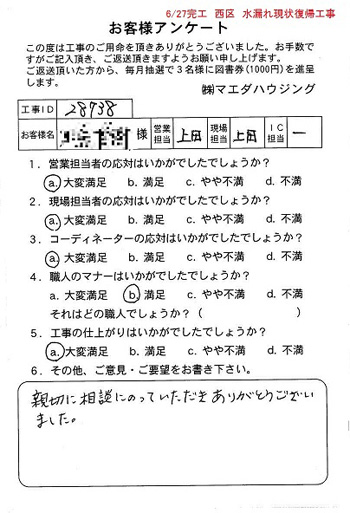 6/27完工 西区 水漏れ現状復帰工事
お客様アンケート
この度は工事のご用命を頂きありがとうございました。お手数で
すがご記入頂き、ご返送頂きますようお願い申し上げます。
ご返送頂いた方から、毎月抽選で3名様に図書券(1000円)を進呈
します。
㈱マエダハウジング
工事ID 28938
お客様名 様 営業担当 上田 現場担当 上田 IC担当 一
1．営業担当者の応対はいかがでしたでしょうか？
a. 大変満足 b. 満足 c. やや不満 d. 不満
2．現場担当者の応対はいかがでしたでしょうか？
a. 大変満足 b. 満足 c. やや不満 d. 不満
3．コーディネーターの応対はいかがでしたでしょうか？
a. 大変満足 b. 満足 c. やや不満 d. 不満
4．職人のマナーはいかがでしたでしょうか？
a. 大変満足 b. 満足 c. やや不満 d. 不満
それはどの職人でしょうか？ ( )
5．工事の仕上がりはいかがでしたでしょうか？
a. 大変満足 b. 満足 c. やや不満 d. 不満
6．その他、ご意見・ご要望をお書き下さい。
親切に相談にのっていただきありがとうござい
ました。